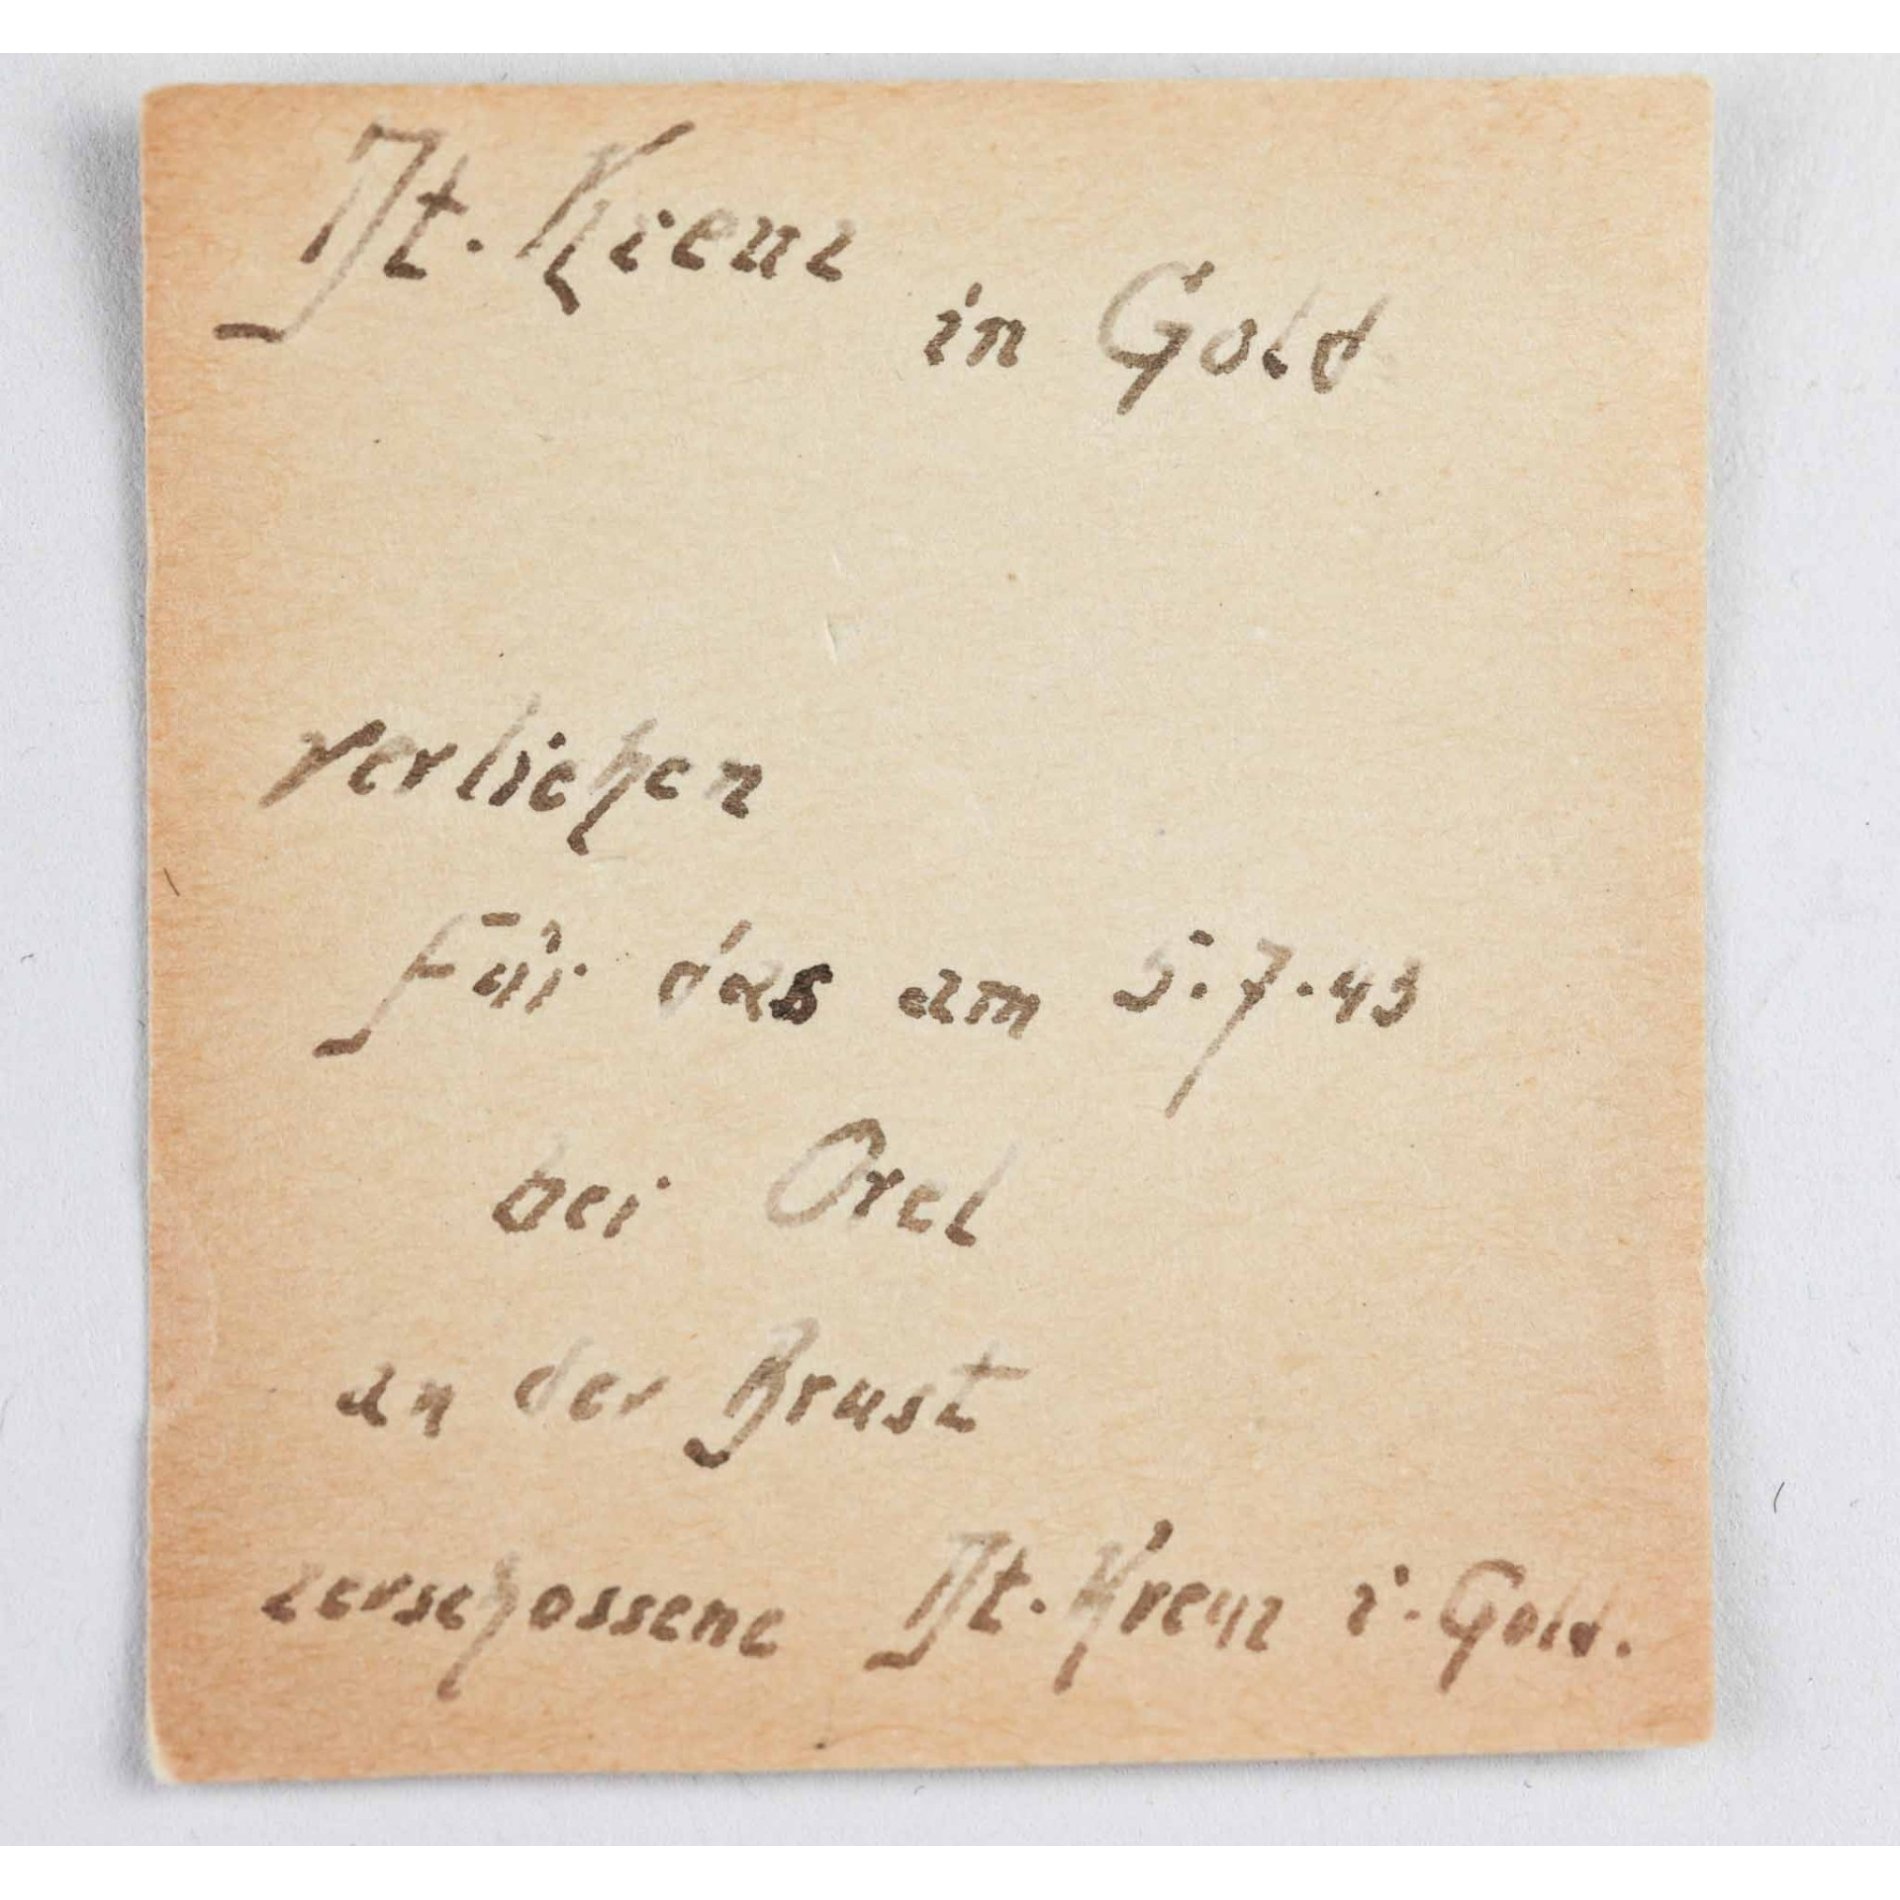 Dt. Kreuz
in Gold
verliehen
für das am 5.7.43
bei Orel
an der Brust
zerschossene Dt. Kreuz i. Gold.